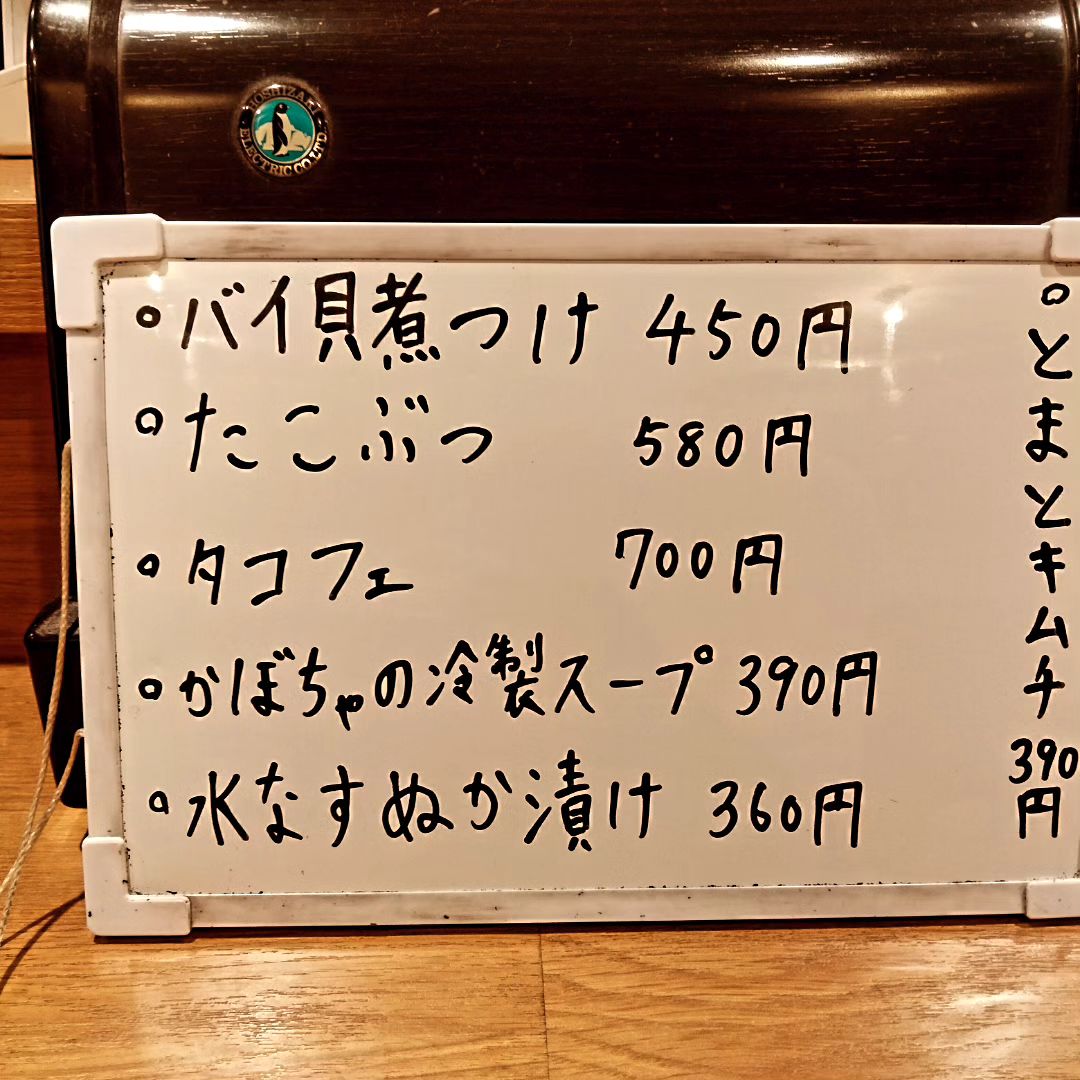 HOSHIZAKI ELECTRIC CO.LTD.
。バイ貝煮つけ 450円
。たこぶつ 580円
。タコフェ 700円
。かぼちゃの冷製スープ 390円
。水なすぬか漬け 360円
。とまとキムチ 390円